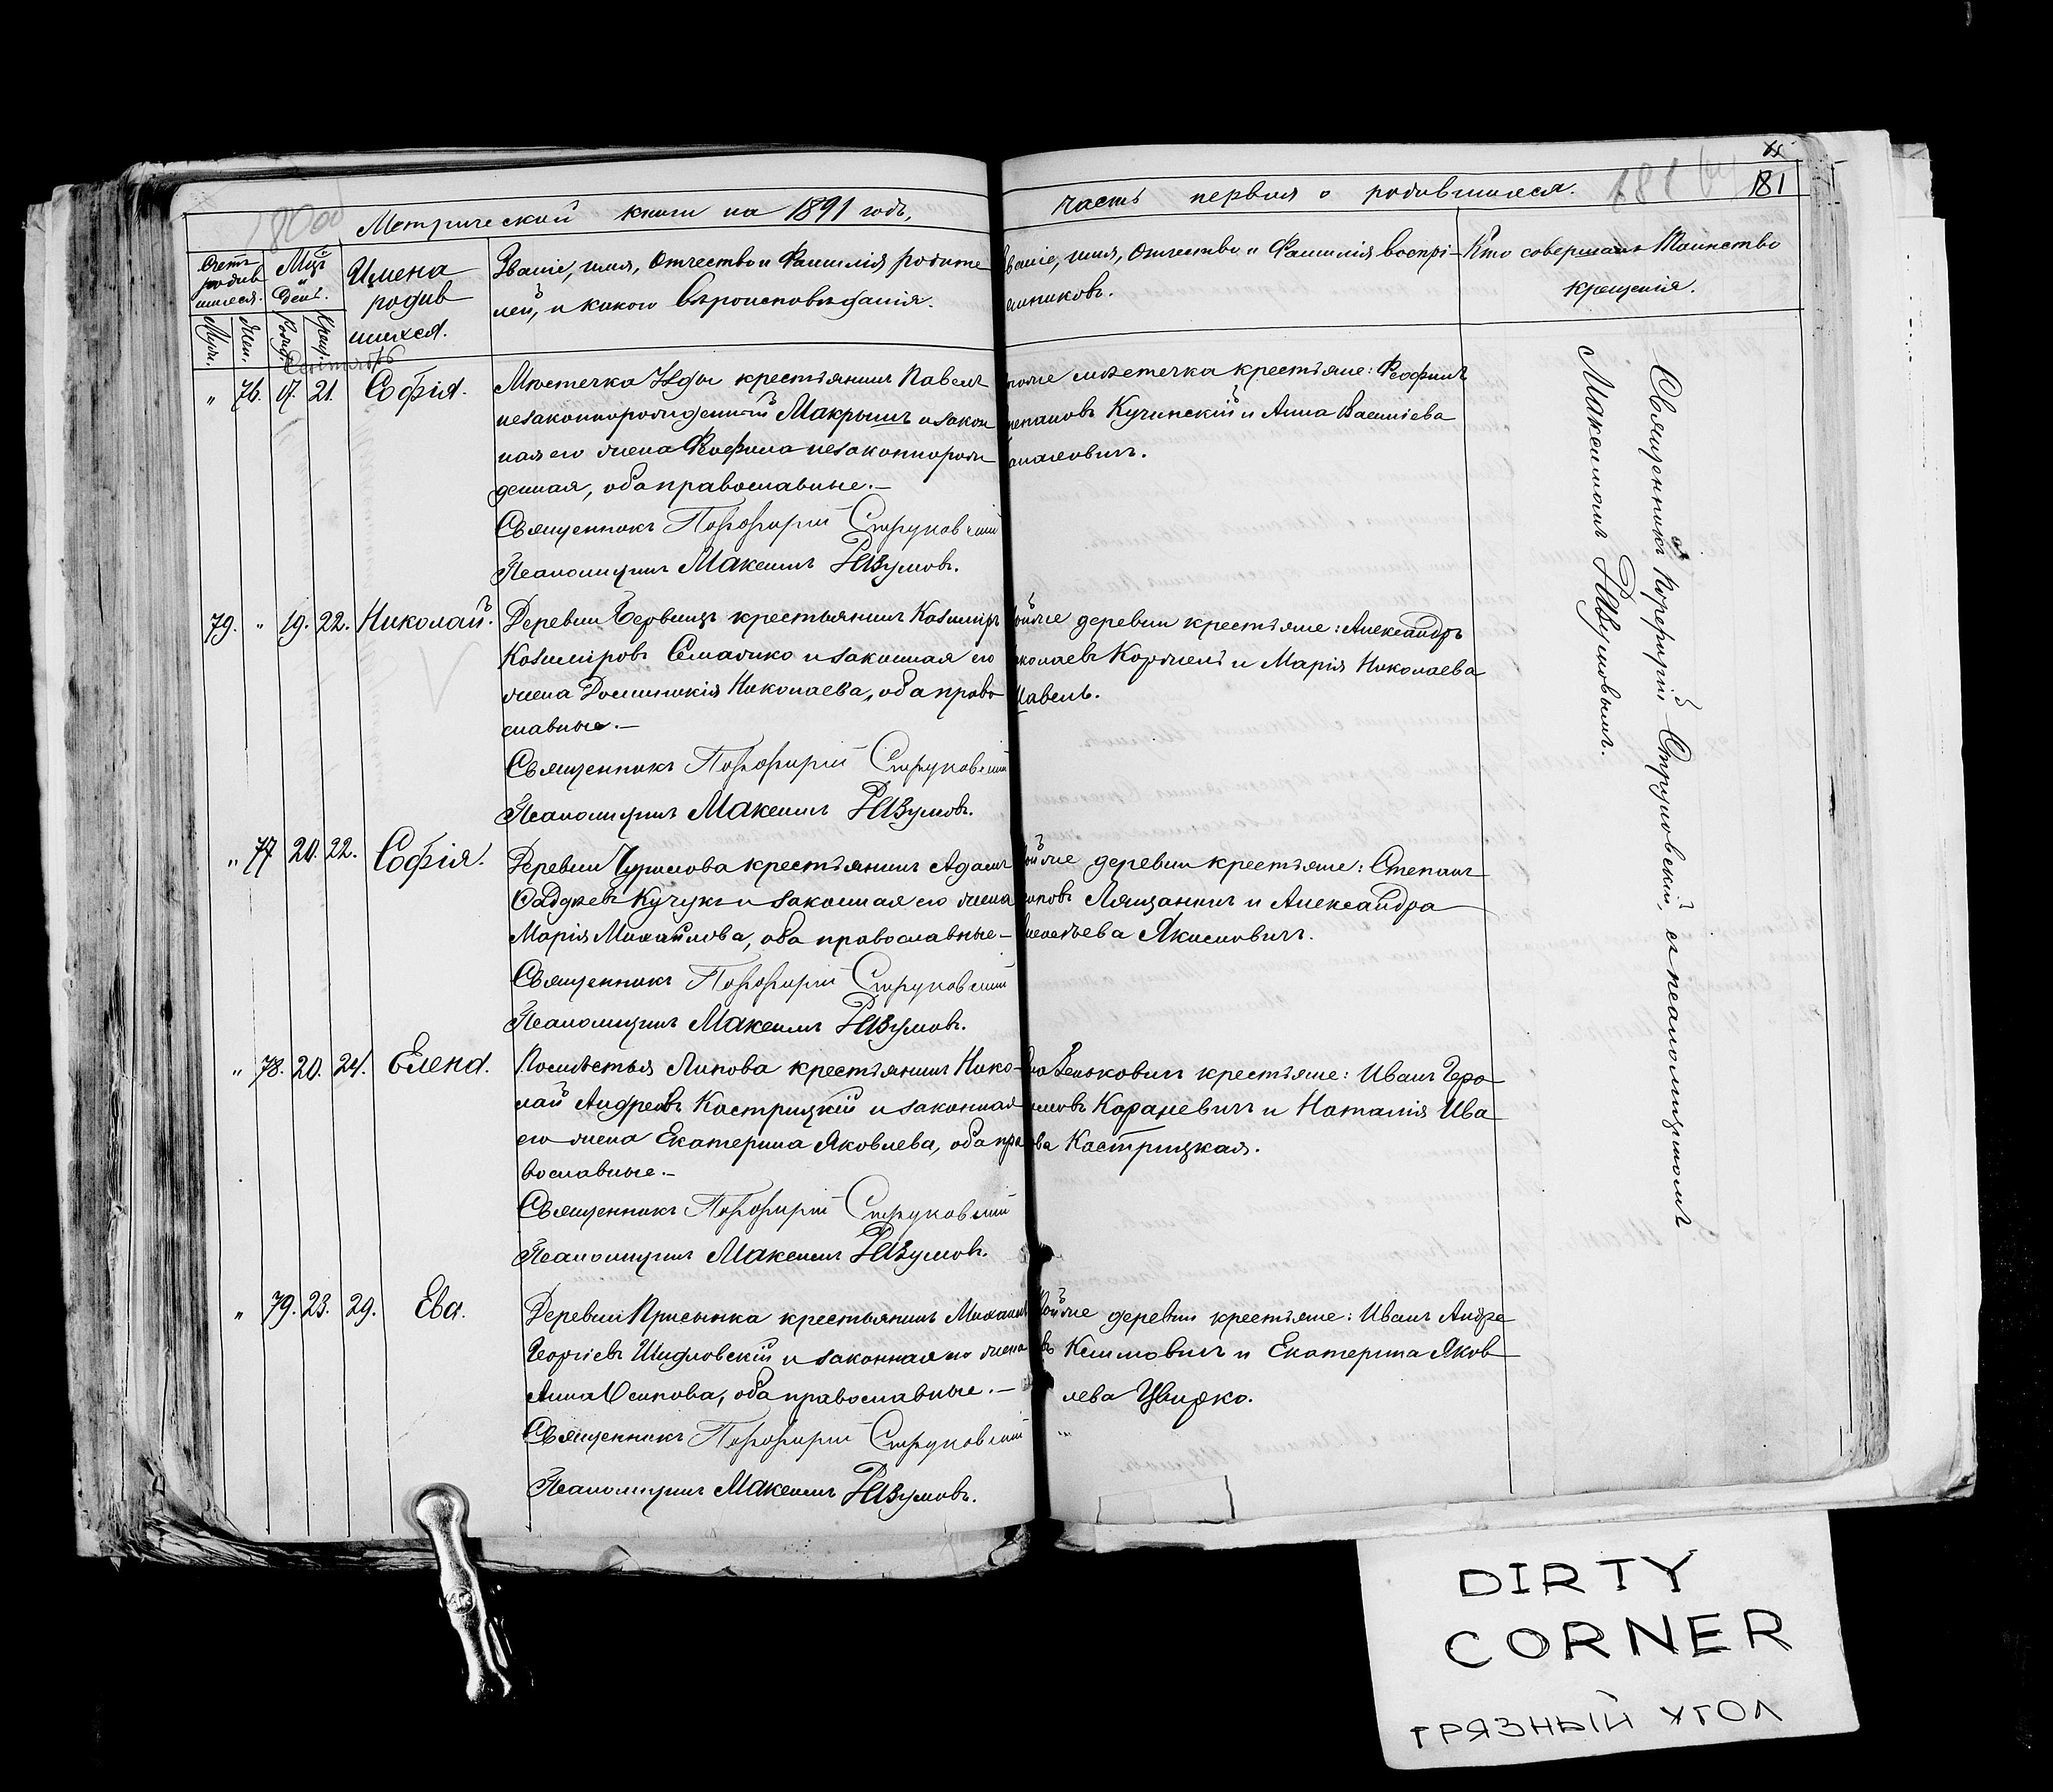 Метрической книги на 1891 годъ,
часть первая о родившихся.
181
181
Счетъ родив шихся.
Мцъ и день.
Имена родив шихся.
Званіе, имя, Отчество и Фамилія родите-
лей, и какого Вѣроисповѣданія.
Званіе, имя, Отчество и Фамилія воспрі-
емниковъ.
Кто совершалъ Таинство
крещенія.
Муж. Жен. Рожд. Крещ.
Сентябрь
„ 76. 17. 21. Софія.
Мѣстечка Узды крестьянинъ Павелъ
незаконнорожденный Макрышъ и закон
ная его жена Феофила незаконнорож
денная, оба православные.—
Священникъ Порфирій Струковскій
Псаломщикъ Максимъ Разумовъ.
тогоже мѣстечка крестьяне: Феофилъ
Степановъ Кучинскій и Анна Василіева
79. „ 19. 22. Николай.
Деревни Червищъ крестьянинъ Казиміръ
Казиміровъ Семашко и законная его
жена Доминикія Николаева, оба право
славные.—
Священникъ Порфирій Струковскій
Псаломщикъ Максимъ Разумовъ.
Тойже деревни крестьяне: Александръ
Николаевъ Коржень и Марія Николаева
„ 77 20. 22. Софія.
Деревни Чурилова крестьянинъ Адамъ
Фадѣевъ Кучукъ и законная его жена
Марія Михайлова, оба православные—
Священникъ Порфирій Струковскій
Псаломщикъ Максимъ Разумовъ.
Тойже деревни крестьяне: Степанъ
Лящанинъ и Александра
Якимовичъ.
„ 78. 20. 24. Елена.
Помѣстья Липова крестьянинъ Нико-
лай Андреевъ Кастрицкій и законная
его жена Екатерина Яковлева, оба пра
вославные.—
Священникъ Порфирій Струковскій
Псаломщикъ Максимъ Разумовъ.
крестьяне: Иванъ Геро-
нимовъ Караневичъ и Наталія Ива
нова Кастрицкая.
„ 79. 23. 29. Ева.
Деревни Присынка крестьянинъ Михаилъ
Георгіевъ Шидловскій и законная его жена
Анна Осипова, оба православные.—
Священникъ Порфирій Струковскій
Псаломщикъ Максимъ Разумовъ.
Тойже деревни крестьяне: Иванъ Андре
евъ Климовичъ и Екатерина Яков
лева Цвирко.
Священникъ Порфирій Струковскій, съ псаломщикомъ
Максимомъ Разумовымъ.
DIRTY
CORNER
ГРЯЗНЫЙ УГОЛ